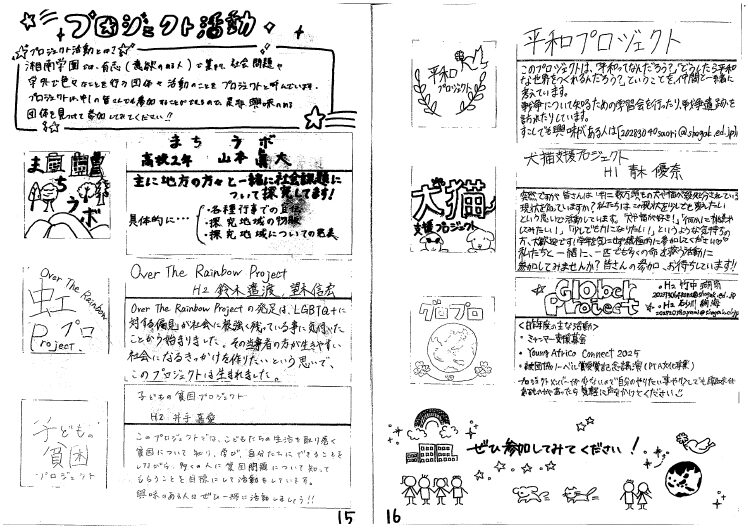 プロジェクト活動
プロジェクト活動とは?
湘南学園では、有志(意欲のある人)で集まって社会問題や
学外で色々なことを行う団体や活動のことをプロジェクトと呼んでいます。
団体を見つけて参加してみてください!!
まちラボ
まちラボ
高校2年 山本
主に地方の方々と一緒に社会課題に
ついて探究してます!
具体的に…
・各種行事での
・探究地域の物販
・探究地域についての発表
Over The Rainbow
虹プロ
Project.
Over The Rainbow Project
H2 鈴木 望木信宏
Over The Rainbow Projectの発足は、LGBTQ+に
対する偏見が社会に根強く残っている事に気付いた
ことから始まりました。その当事者の方が生きやすい
社会になるきっかけを作りたいという思いで、
このプロジェクトは生まれました。
子どもの
貧困
プロジェクト
子どもの貧困プロジェクト
H2 井手
このプロジェクトでは、こどもたちの生活を取り巻く
貧困について知り、学び、自分たちにできることを
しながら、多くの人に貧困問題について知って
もらうことを目標にして活動をしています。
興味のある人はぜひ一緒に活動しましょう!!
15
平和
プロジェクト
平和プロジェクト
このプロジェクトは、「平和ってなんだろう?」「どうしたら平和
な世界をつくれるんだろう?」ということを、仲間と一緒に
考えています。
戦争について知るための学習会を行ったり、戦争遺跡を
訪れたりしています。
すこしでも興味がある人は
犬猫
支援プロジェクト
犬猫支援プロジェクト
H1 青木 優奈
突然ですが皆さんは年に数万頭もの犬や猫が殺処分されている
現状を知っていますか?私たちはこの現状を少しでも変えたい
という思いで活動しています。「犬や猫が好き!」「何かに挑戦
してみたい!」「少しでも力になりたい!」というような気持ちの
私たちと一緒に、一匹でも多くの命を救う活動に
参加してみませんか?皆さんの参加、お待ちしています!!
グロプロ
Global
Project
・H2 竹中
・H2 砂川
<昨年度の主な活動>
・ミャンマー支援募金
・Young Africa Connect 2025
・被団協ノーベル賞受賞記念講演(PTA文化事業)
ぜひ参加してみてください!
16